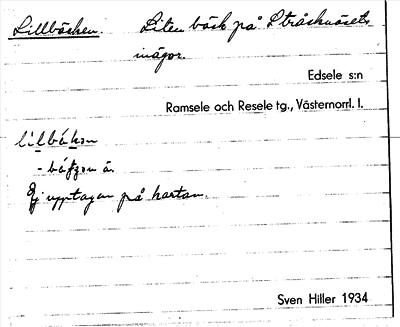 Lillbäcken. Liten bäck på Stråsknäsets
inägor.
Edsele s:n
Ramsele och Resele tg., Västernorrl. l.
lilbäkan
Ej upptagen på kartan.
Sven Hiller 1934